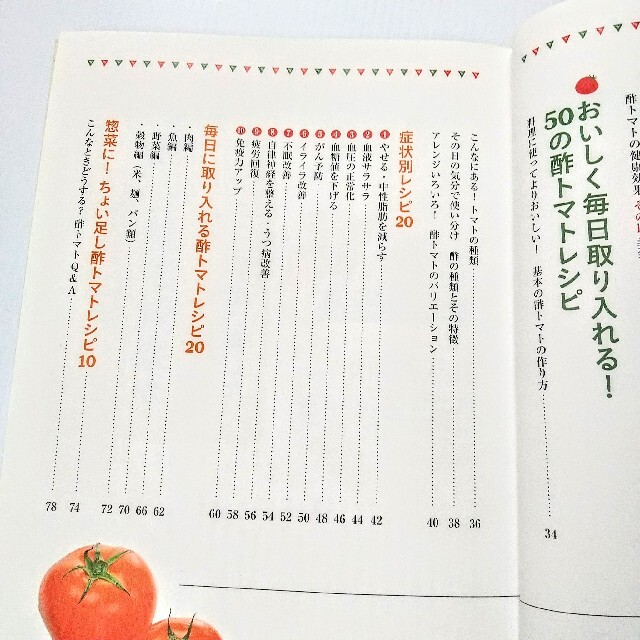 酢トマトの健康効果 その
おいしく毎日取り入れる！
50の酢トマトレシピ
料理に使ってよりおいしい！ 基本の酢トマトの作り方 34
こんなにある！トマトの種類 36
その日の気分で使い分け 酢の種類とその特徴 38
アレンジいろいろ！ 酢トマトのバリエーション 40
症状別レシピ20
1 やせる・中性脂肪を減らす 42
2 血液サラサラ 44
3 血圧の正常化 46
4 血糖値を下げる 48
5 がん予防 50
6 イライラ改善 52
7 不眠改善 54
8 自律神経を整える・うつ病改善 56
9 疲労回復 58
10 免疫力アップ 60
毎日に取り入れる酢トマトレシピ20
・肉編 62
・魚編 66
・野菜編 70
・穀物編（米、麺、パン類） 72
惣菜に！ちょい足し酢トマトレシピ10 74
こんなときどうする？ 酢トマトQ&A 78